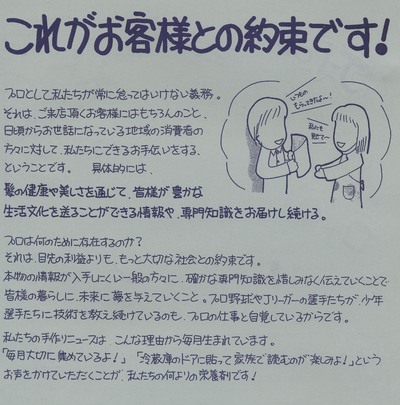 これがお客様との約束です!
プロとして私たちが常に怠ってはいけない義務。
それは、ご来店頂くお客様にはもちろんのこと、
日頃からお世話になっている地域の消費者の
方々に対して、私たちにできるお手伝いをする、
ということです。 具体的には、
髪の健康や美しさを通じて、皆様が豊かな
生活文化を送ることができる情報や、専門知識をお届けし続ける。
いつもの
もらってきたよ〜!
私にも
見せて〜
プロは何のために存在するのか?
それは、目先の利益よりも、もっと大切な社会との約束です。
本物の情報が入手しにくい一般の方々に、確かな専門知識を惜しみなく伝えていくことで
皆様の暮らしに、未来に夢を与えていくこと。プロ野球やJリーガーの選手たちが、少年
選手たちに技術を教え続けているのも、プロの仕事と自覚しているからです。
私たちの手作りニュースは、こんな理由から毎月生まれています。
「毎月大切に集めているよ!」「冷蔵庫のドアに貼って家族で読むのが楽しみよ!」という
お声をかけていただくことが、私たちの何よりの栄養剤です!